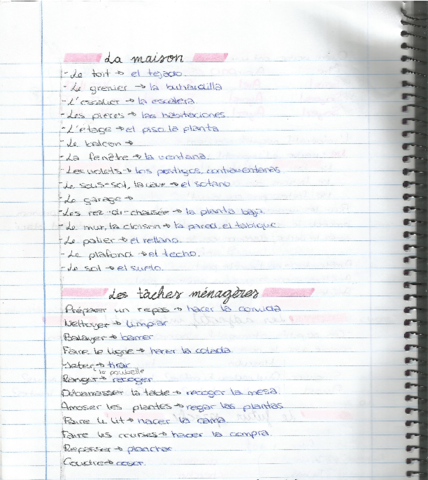 La maison
- Le toit → el tejado.
- Le grenier → la buhardilla
- L'escalier → la escalera
- Les pièces → las habitaciones.
- L'etage → el piso, la planta
- Le balcon →
- La fenêtre → la ventana.
- Les volets → los postigos, contraventanas
- Le sous-sol, la cave → el sotano
- Le garage →
- Les rez-de-chausser → la planta baja
- Le mur, la cloison → la pared, el tabique
- Le palier → el rellano.
- Le plafond → el techo.
- Le sol → el suelo.
Les tâches ménagères
Préparer un repas → hacer la comida
Nettoyer → limpiar
Balayer → barrer
Faire le ligne → hacer la colada
Jeter → tirar
la poubelle
Ranger → recoger
Débarrasser la table → recoger la mesa.
Arroser les plantes → regar las plantas
Faire le lit → hacer la cama
Faire les courses → hacer la compra.
Repasser → planchar
Coudre → coser.